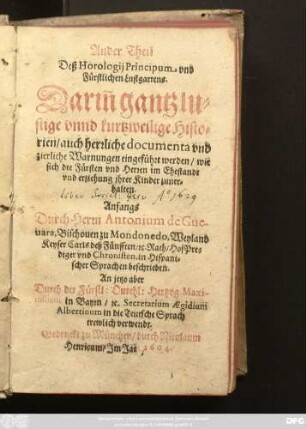 Ander Theil
Deß Horologij Principum. vnd
Fürstlichen Lustgartens.
Dariñ gantz lu-
stige vnnd kurtzweilige Histo-
rien/ auch herrliche documenta vnd
zierliche Warnungen eingeführt werden/ wie
sich die Fürsten vnd Herren im Ehestandt
vnd erziehung jhrer Kinder zuuer-
halten.
Aº 1629
Anfangs
Durch Herrn Antonium de Gue-
uara, Bischouen zu Mondonedo, Weyland
Keyser Carls deß Fünfften/ ꝛc. Rath/ HofPre-
diger vnd Chronisten. in Hispani-
scher Sprachen beschrieben.
An jetzo aber
Durch der Fürstl: Durchl: Hertzog Maxi-
miliani in Bayrn/ ꝛc. Secretarium Ægidium
Albertinum in die Teutsche Sprach
trewlich verwendt.
Gedruckt zu München/ durch Nicolaum
Henricum/ Im Jar 1604.